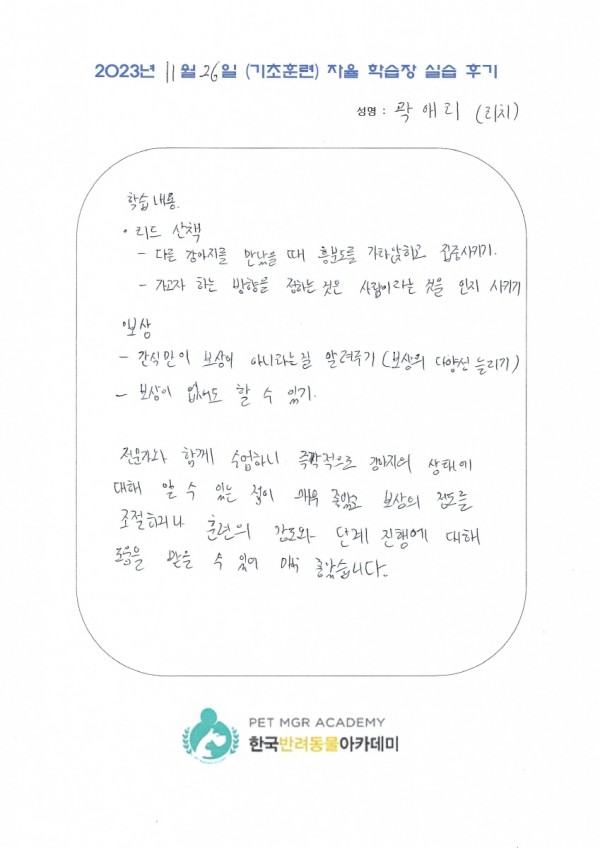 2023년 11월 26일 (기초훈련) 자율 학습장 실습 후기
성명 : 곽애리 (리치)
학습내용.
• 리드 산책
- 다른 강아지를 만났을 때 흥분도를 가라앉히고 집중시키기.
- 가고자 하는 방향을 정하는 것은 사람이라는 것을 인지 시키기
•보상
- 간식만이 보상이 아니라는걸 알려주기 (보상의 다양성 늘리기)
- 보상이 없애도 할 수 있기.
전문가와 함께 수업하니 즉각적으로 강아지의 상태에
대해 알 수 있는 점이 매우 좋았고 보상의 정도를
조절하거나 훈련의 강도와 단계 진행에 대해
도움을 받을 수 있어 매우 좋았습니다.
PET MGR ACADEMY
한국반려동물아카데미